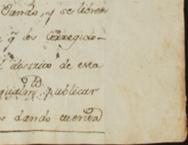 dando, y se libren
q los Corregido-
distrito de esta
publicar
dando cuenta